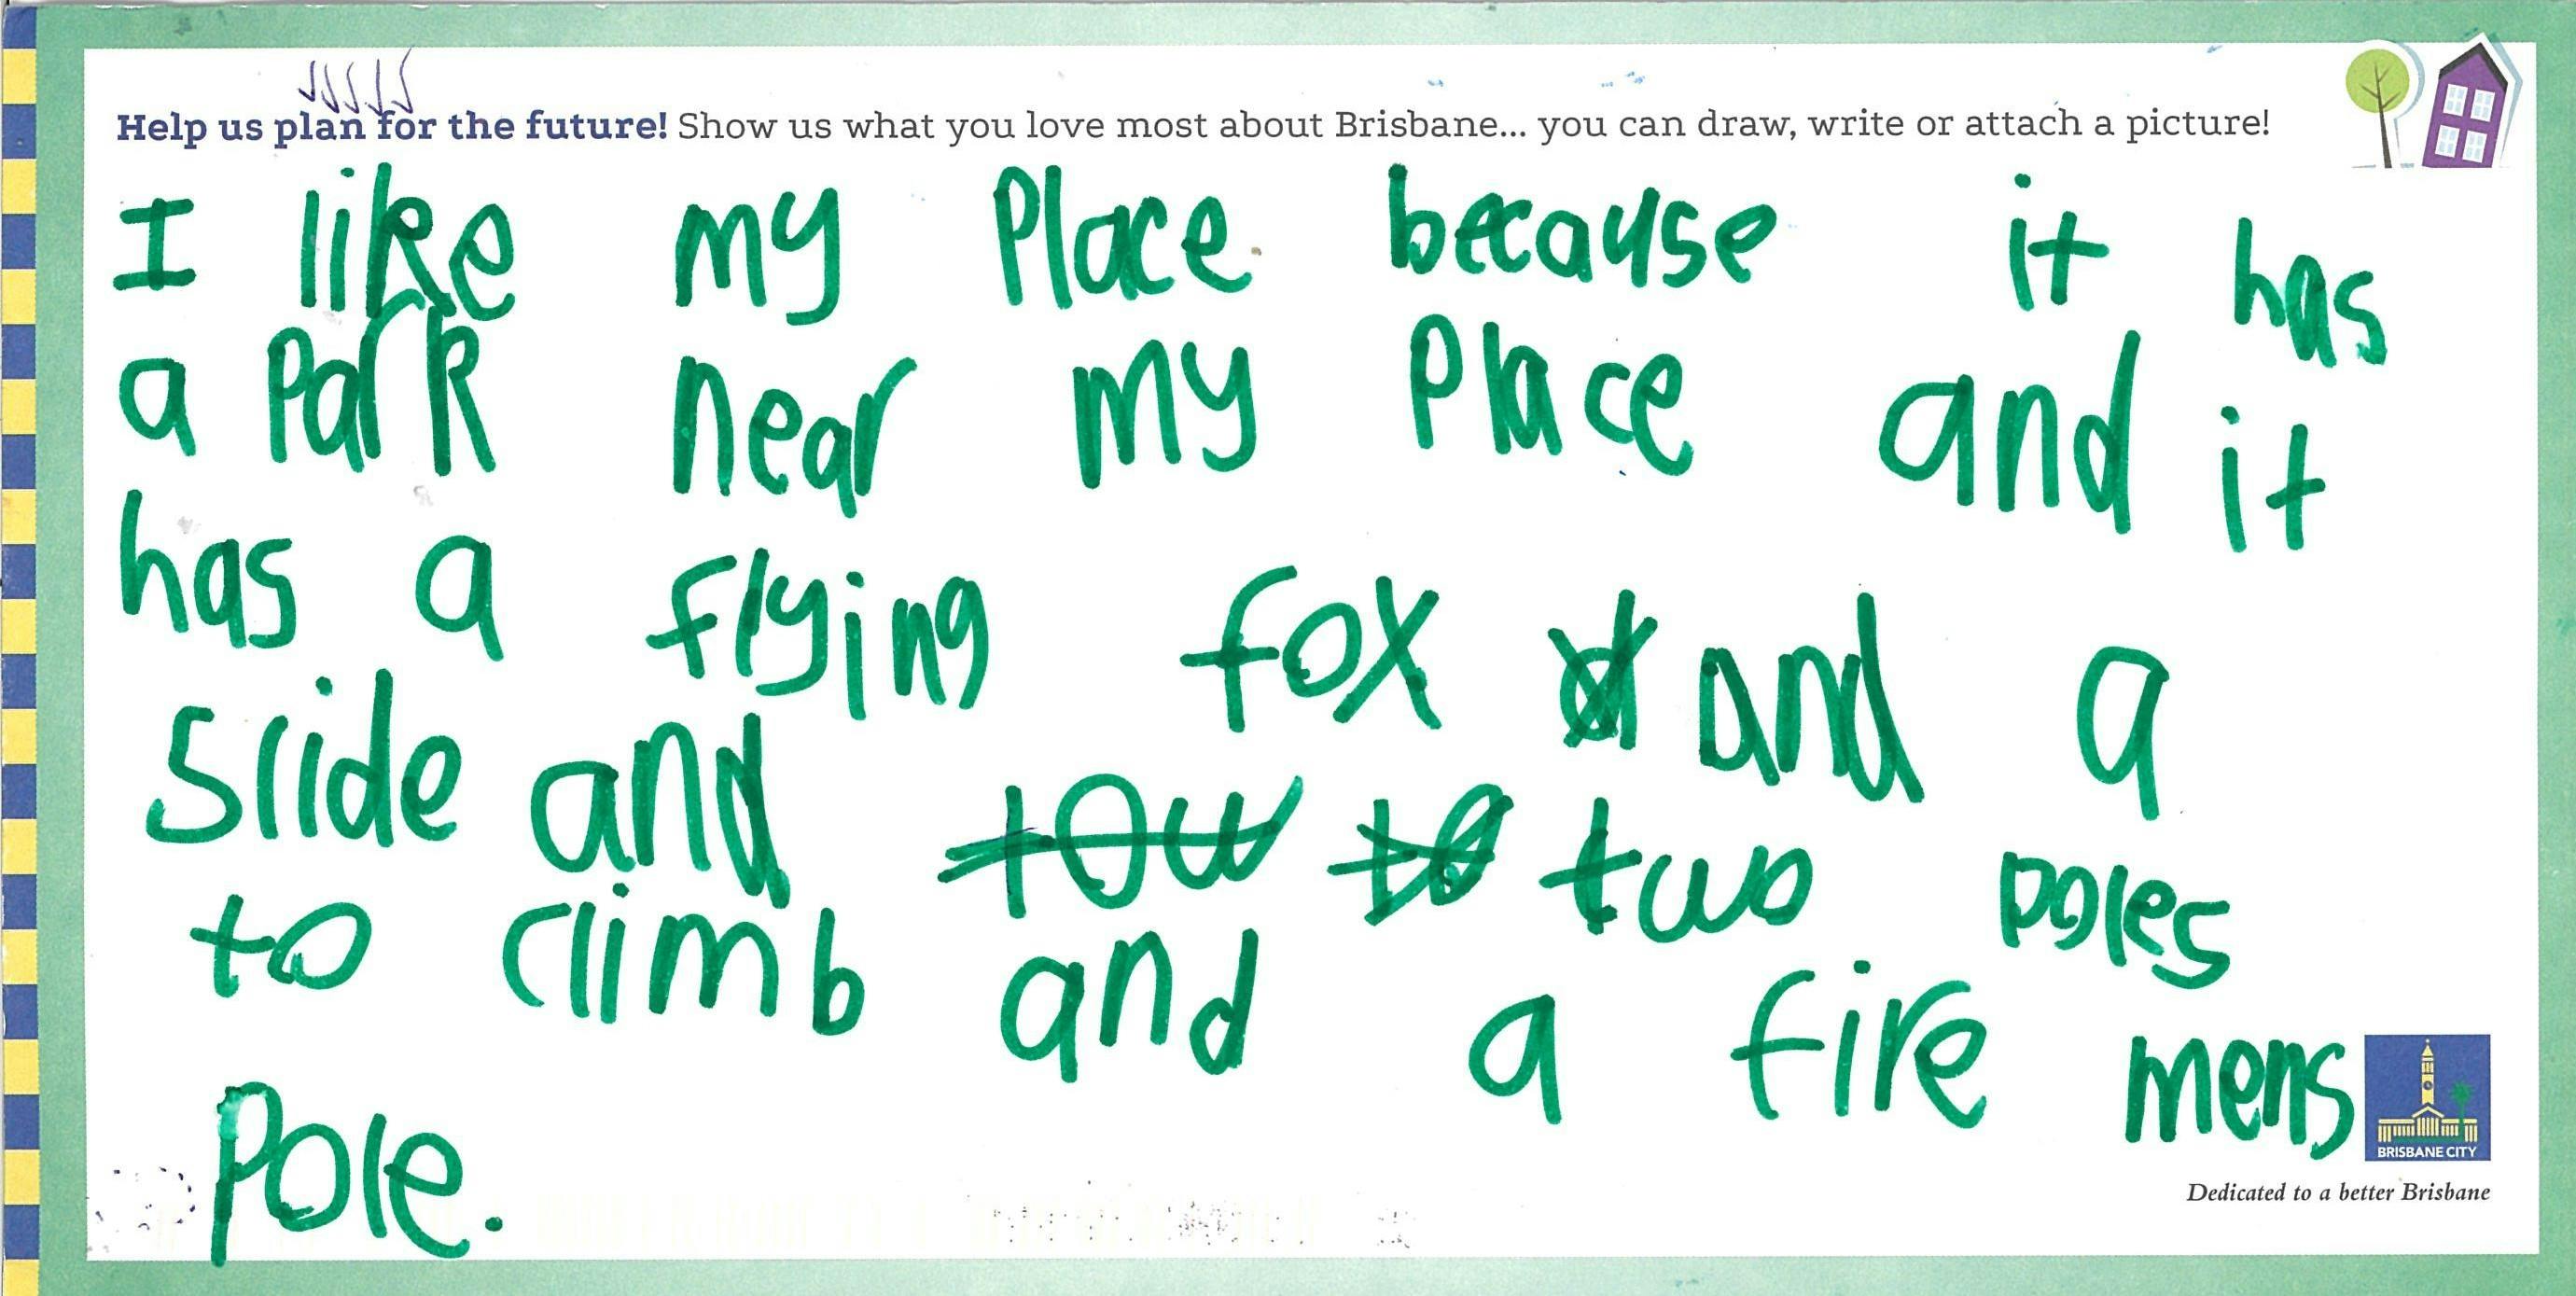 Help us plan for the future! Show us what you love most about Brisbane... you can draw, write or attach a picture!
I like my Place because it has
a Park near my Place and it
has a flying fox d and a
slide and tow to two poles
to climb and a fire mens
Pole.
BRISBANE CITY
Dedicated to a better Brisbane